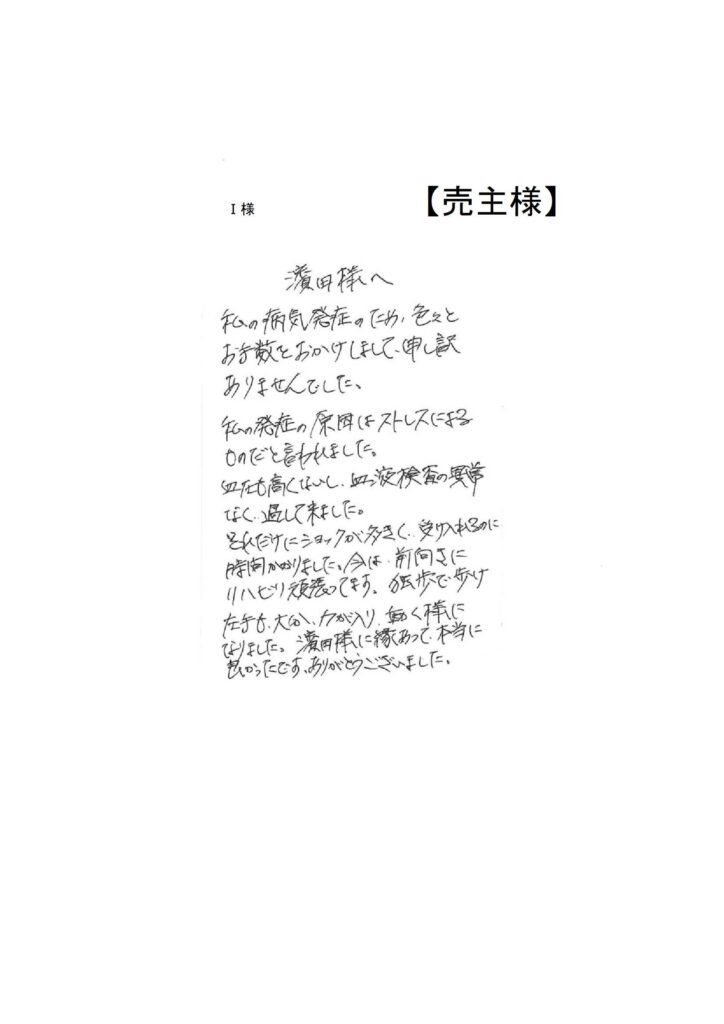 I 様
【売主様】
濱田様へ
私の病気発症のため、色々と
お手数をおかけしまして、申し訳
ありませんでした。
私の発症の原因はストレスによる
ものだと言われました。
血圧も高くないし、血液検査の異常
なく、過して来ました。
それだけにショックが多きく、受け入れるのに
時間かかりました。今は、前向きに
リハビリ頑張ってます。独歩で歩け
左手も、大分、力が入り、動く様に
なりました。濱田様に縁あって、本当に
良かったです。ありがとうございました。